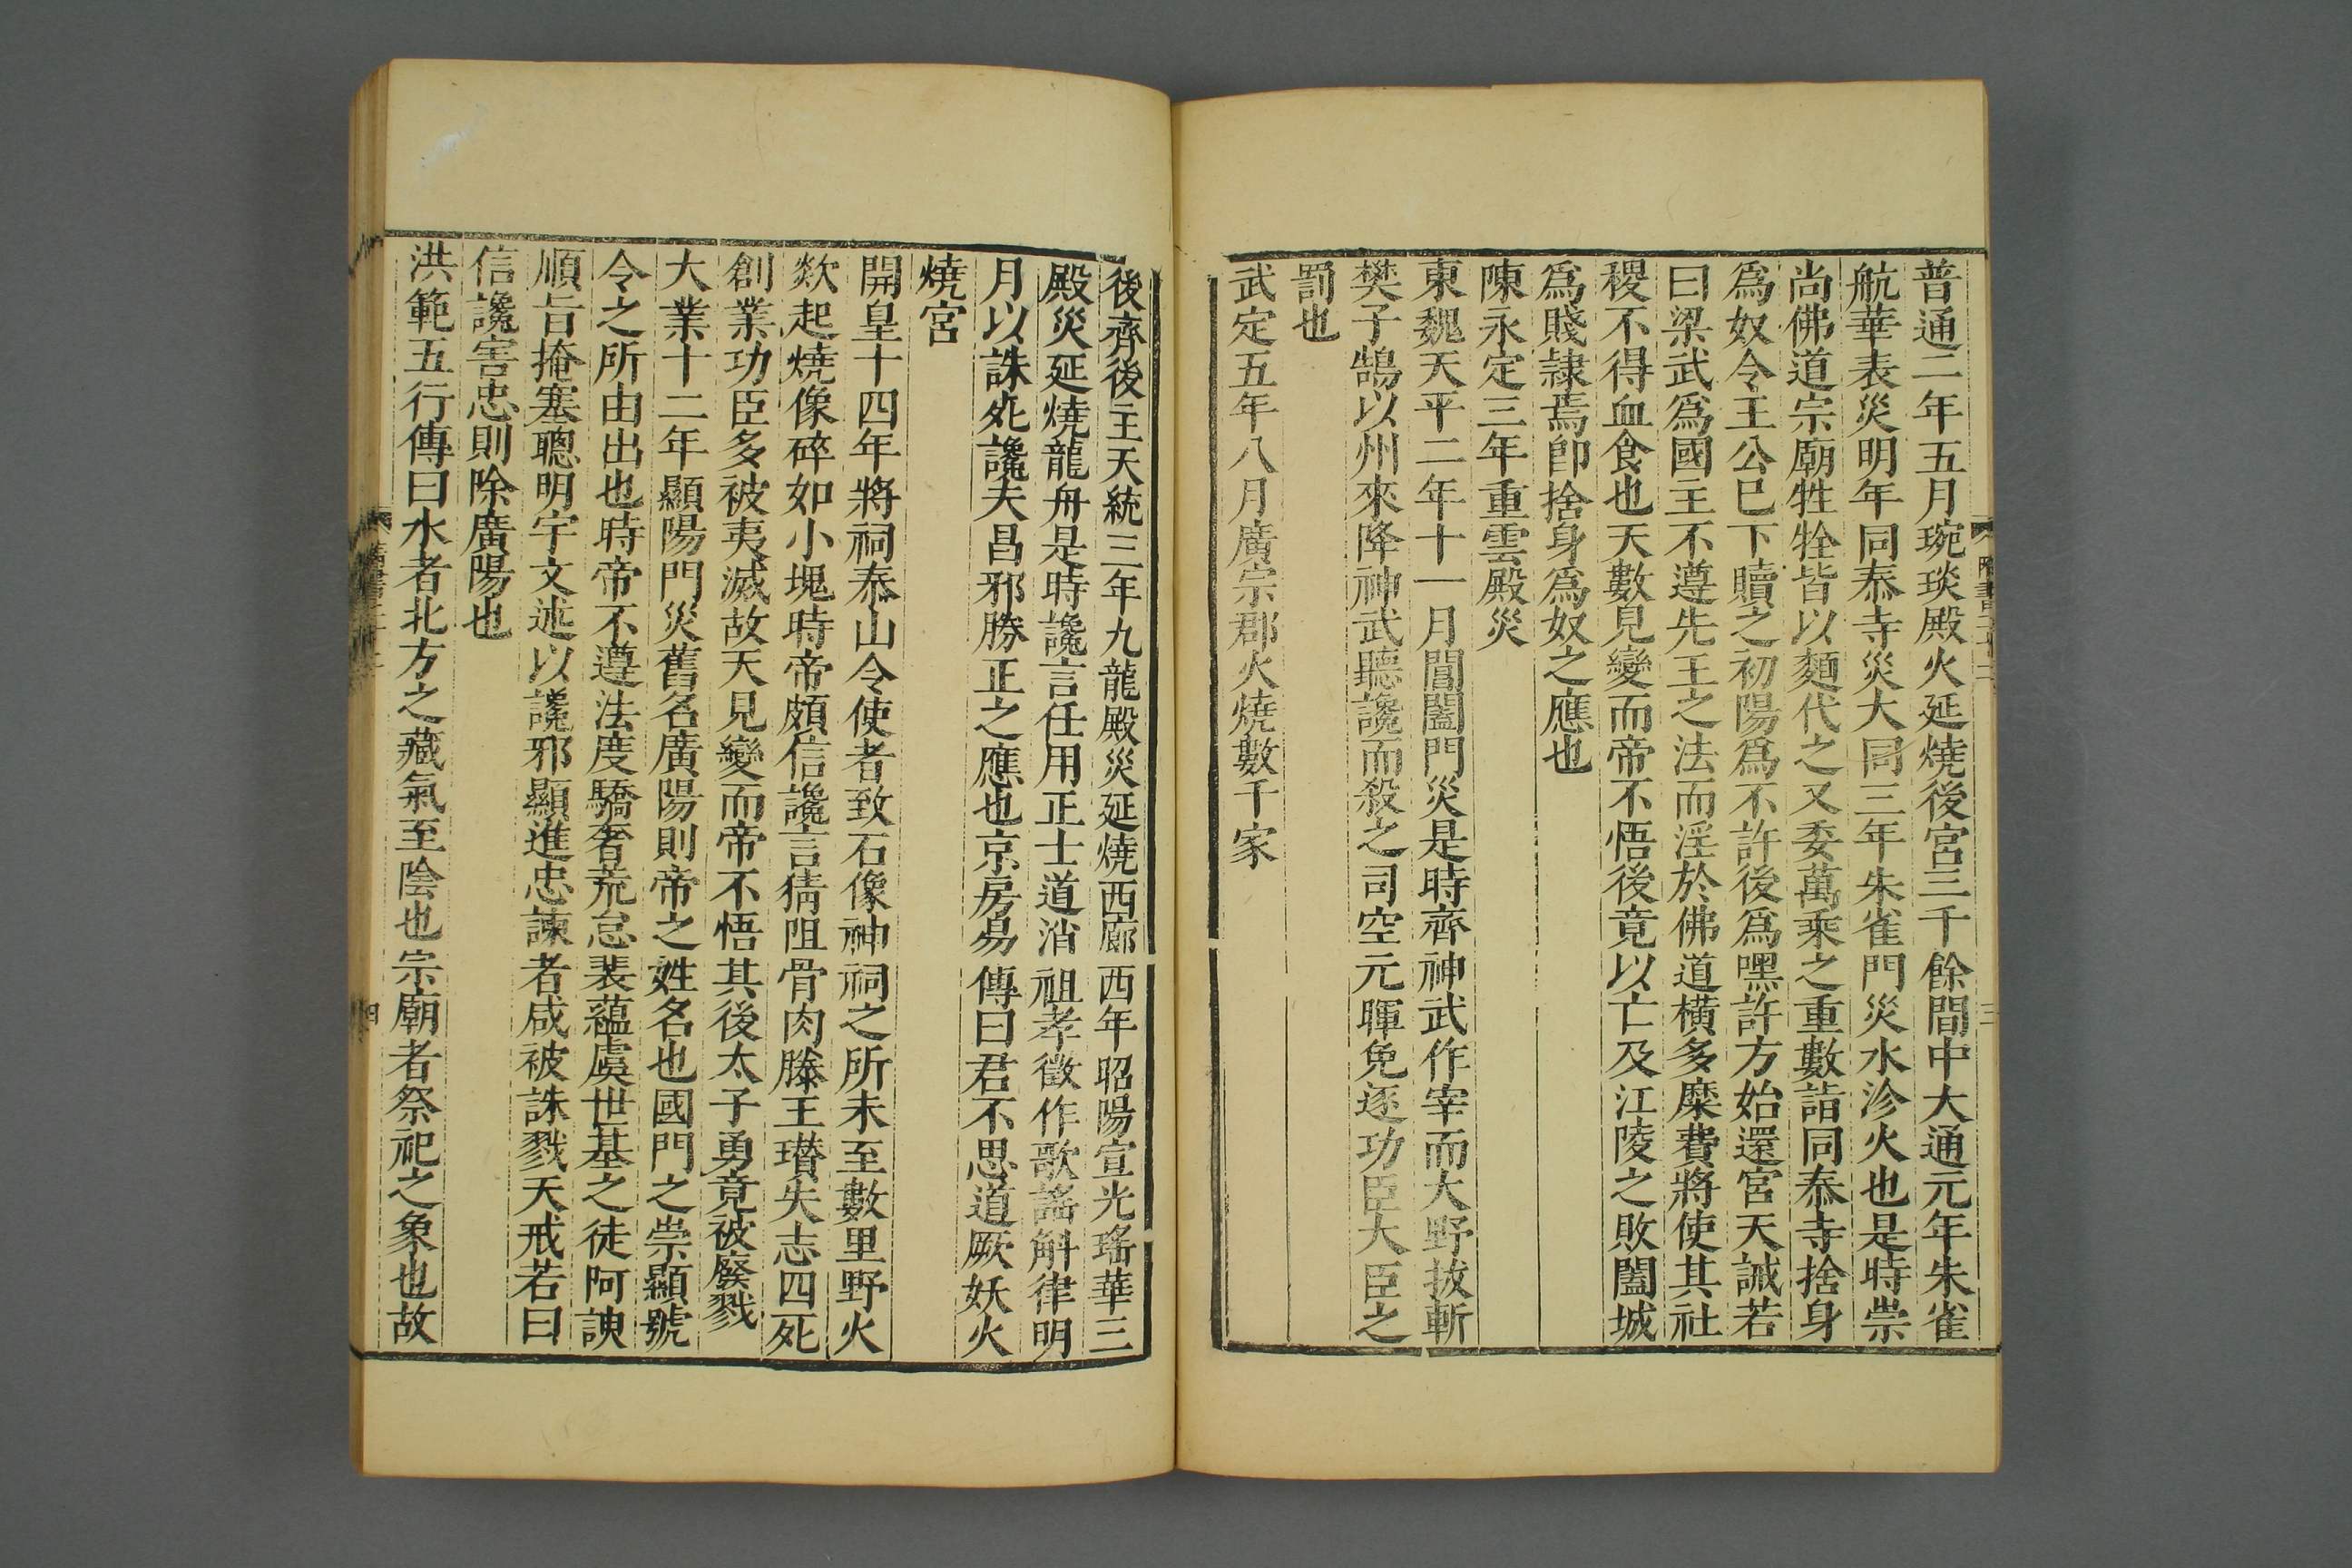 普通二年五月琬琰殿火延燒後宮三千餘間中大通元年朱雀
航華表災明年同泰寺災大同三年朱雀門災水沴火也是時崇
尚佛道宗廟牲牷皆以麵代之又委萬乘之重數詣同泰寺捨身
爲奴令王公已下贖之初陽爲不許後爲嘿許方始還宮天誡若
曰梁武爲國主不遵先王之法而淫於佛道橫多糜費將使其社
稷不得血食也天數見變而帝不悟後竟以亡及江陵之敗闔城
爲賤隷焉卽捨身爲奴之應也
陳永定三年重雲殿災
東魏天平二年十一月閶闔門災是時齊神武作宰而大野拔斬
樊子鵠以州來降神武聽讒而殺之司空元暉免逐功臣大臣之
罰也
武定五年八月廣宗郡火燒數千家
後齊後主天統三年九龍殿災延燒西廊西年昭陽宣光瑤華三
殿災延燒龍舟是時讒言任用正士道消祖孝徵作歌謠斛律明
月以誅死讒夫昌邪勝正之應也京房易傳曰君不思道厥妖火
燒宮
開皇十四年將祠泰山令使者致石像神祠之所未至數里野火
欻起燒像碎如小塊時帝頗信讒言猜阻骨肉滕王瓚失志四死
創業功臣多被夷滅故天見變而帝不悟其後太子勇竟被廢戮
大業十二年顯陽門災舊名廣陽則帝之姓名也國門之崇顯號
令之所由出也時帝不遵法度驕奢荒怠裴蘊虞世基之徒阿諛
順旨掩塞聰明宇文述以讒邪顯進忠諫者咸被誅戮天戒若曰
信讒害忠則除廣陽也
洪範五行傳曰水者北方之藏氣至陰也宗廟者祭祀之象也故